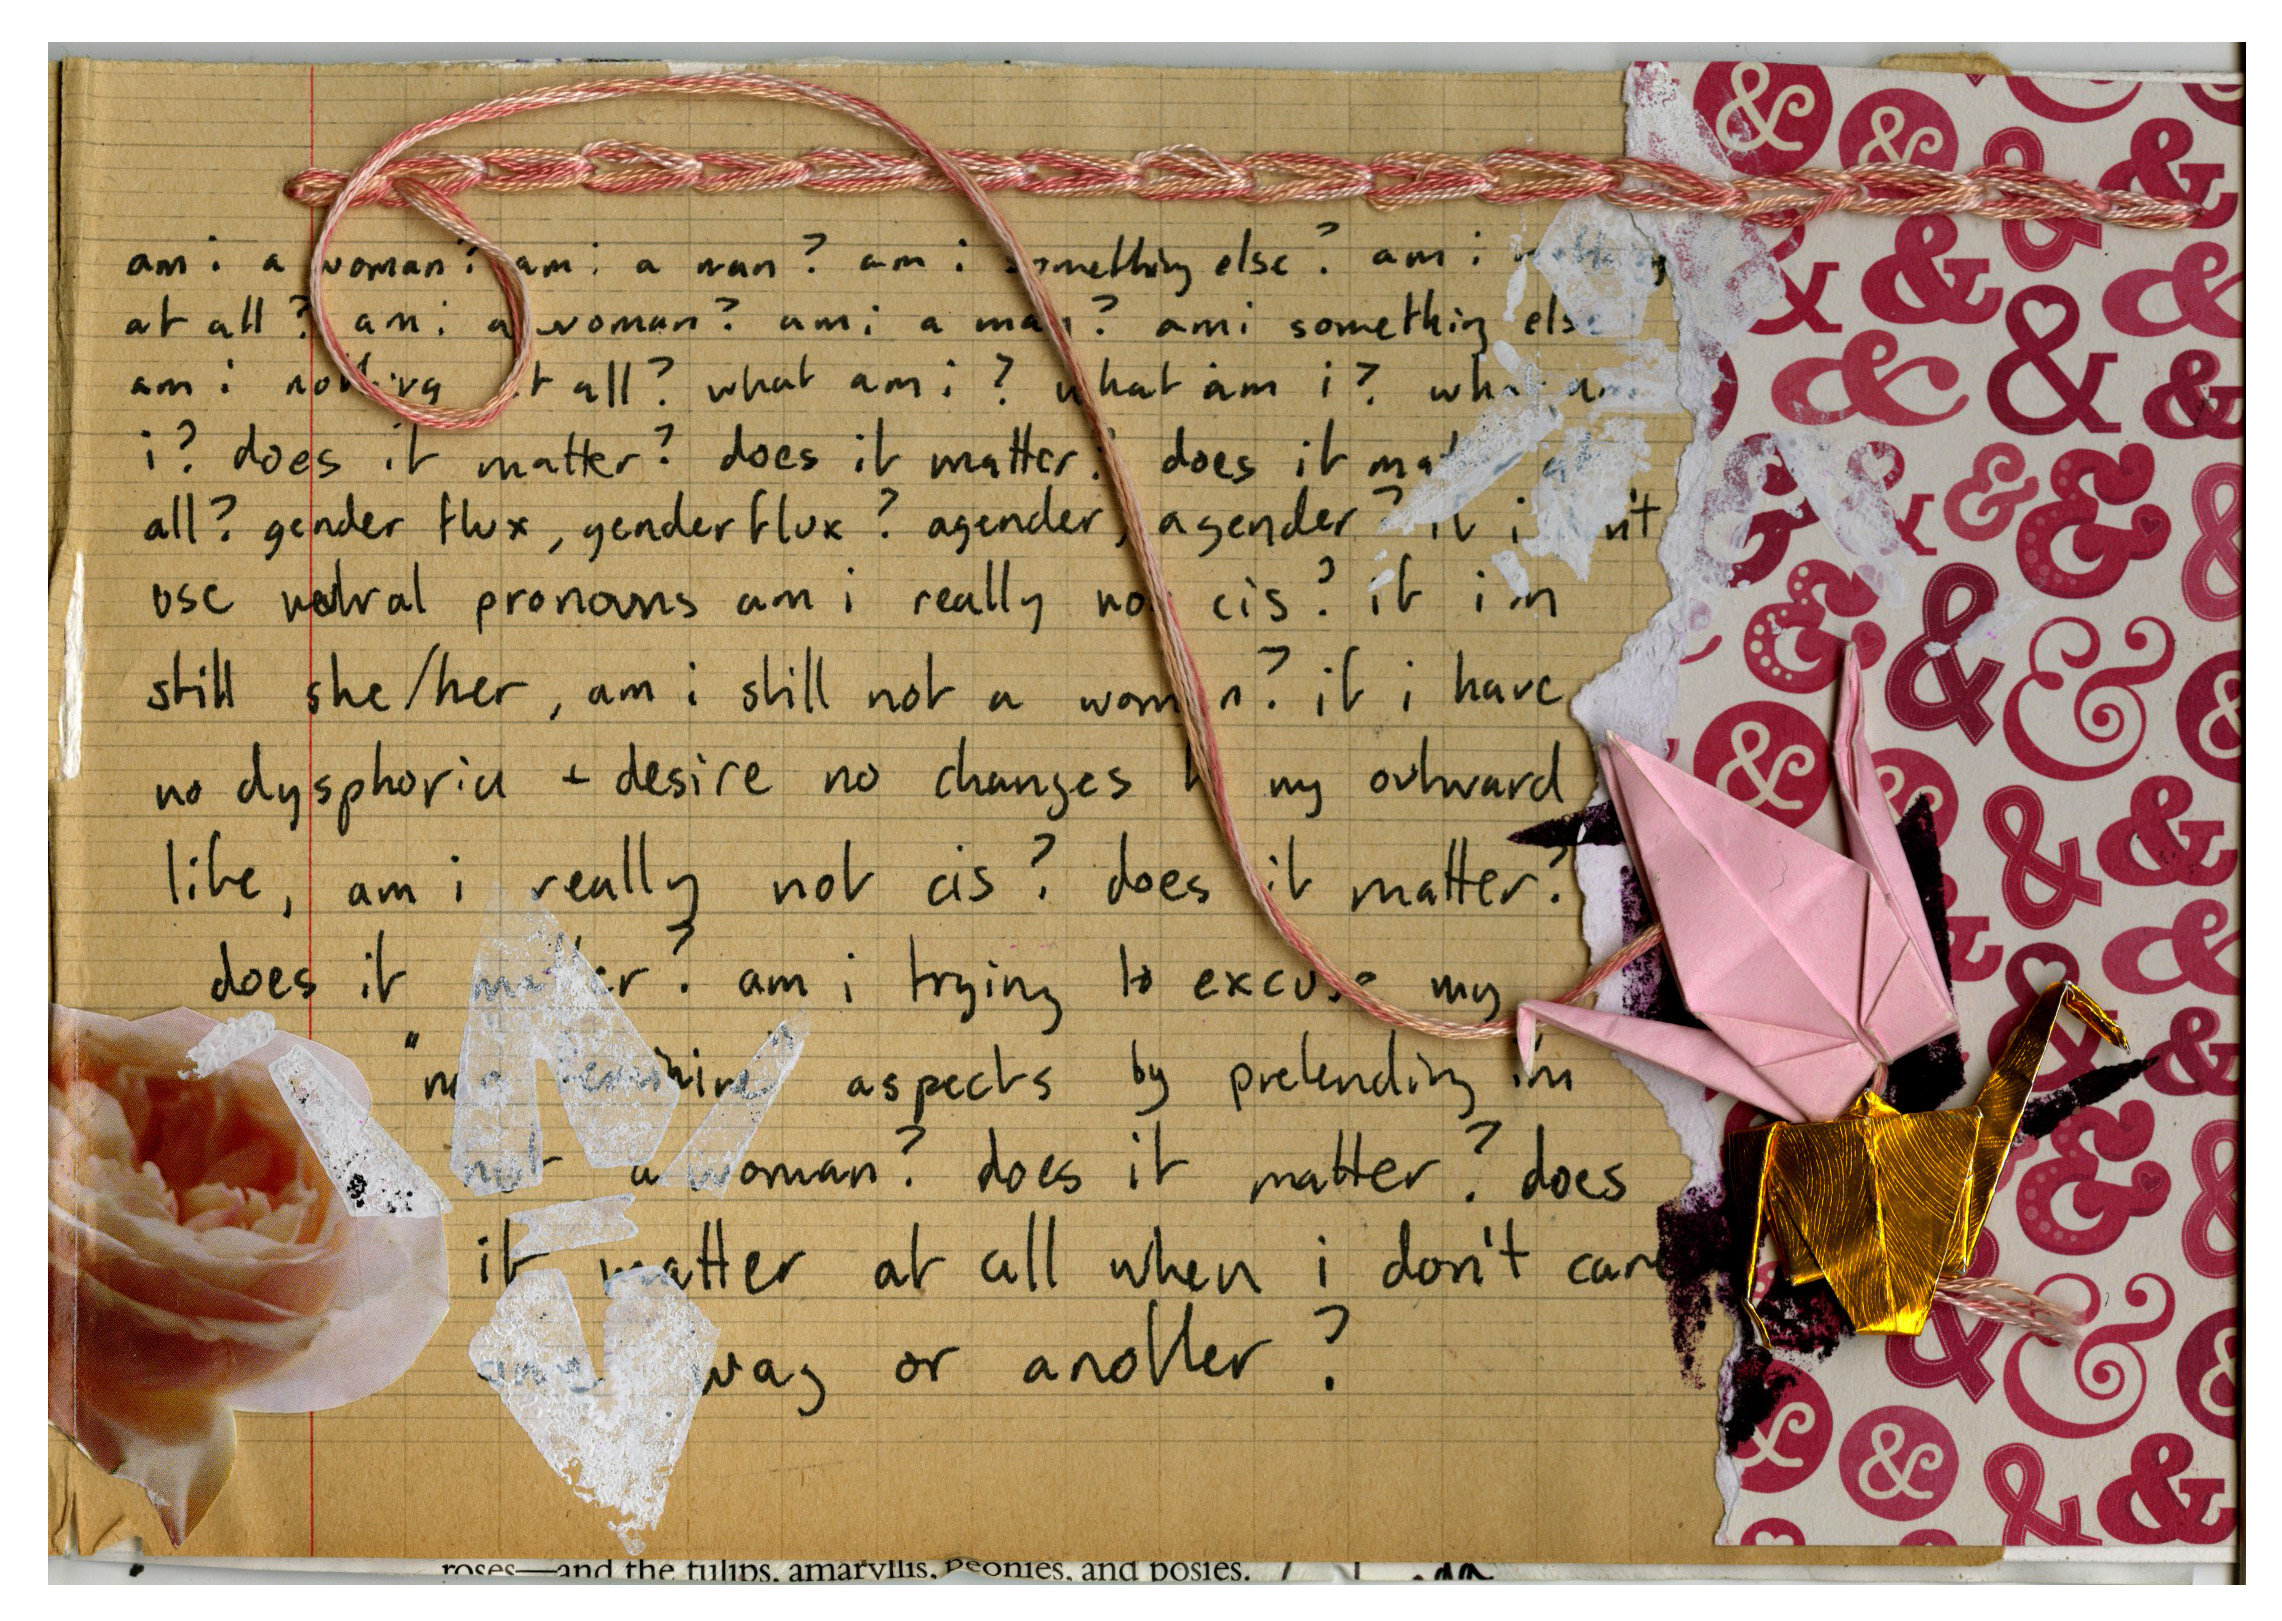 am i a woman? am i a man? am i something else? am i nothing
at all? am i a woman? am i a man? am i something else
am i nothing at all? what am i? what am i? what am
i? does it matter? does it matter? does it matter at
all? gender flux, genderflux? agender, agender? if i don't
use netral pronouns am i really not cis? if im
still she/her, am i still not a woman? if i have
no dysphoria + desire no changes to my outward
life, am i really not cis? does it matter?
does it matter? am i trying to excuse my
"non feminine" aspects by pretending im
not a woman? does it matter? does
it matter at all when i don't care
one way or another?
roses—and the tulips, amaryllis, peonies, and posies.